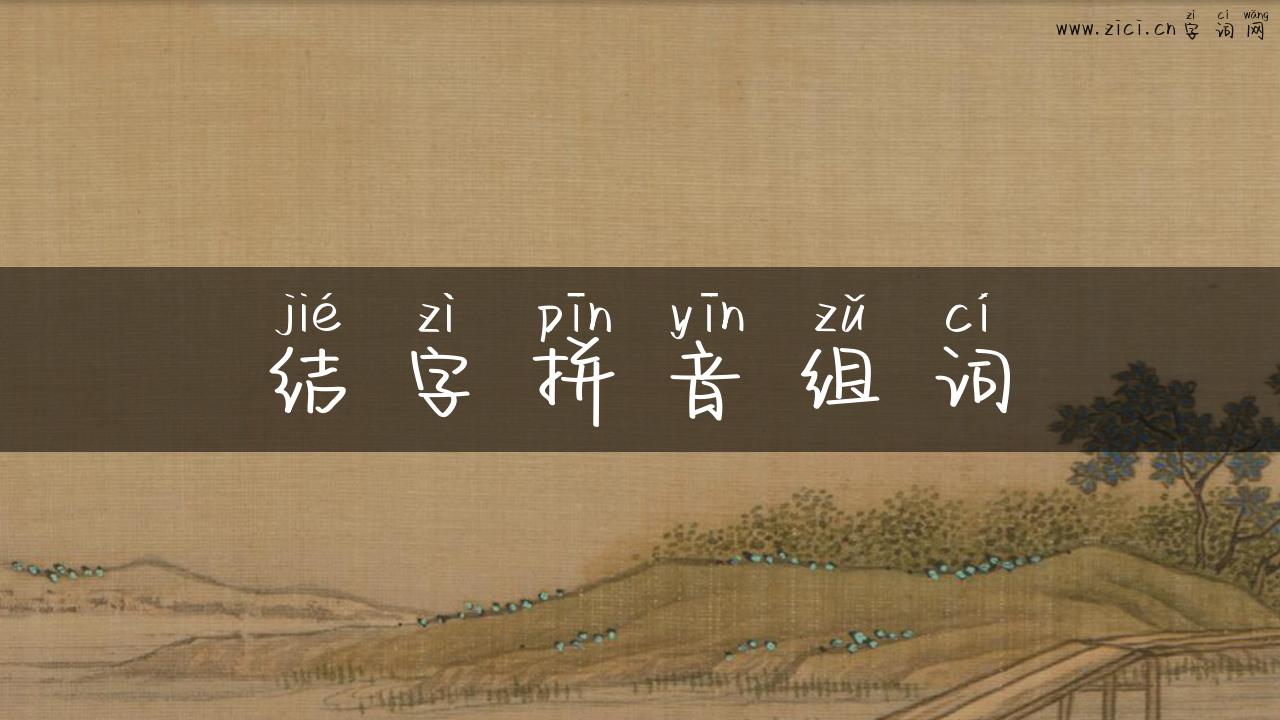 zì cí wǎng
www.zici.cn字词网
jié zì pīn yīn zǔ cí
结字拼音组词